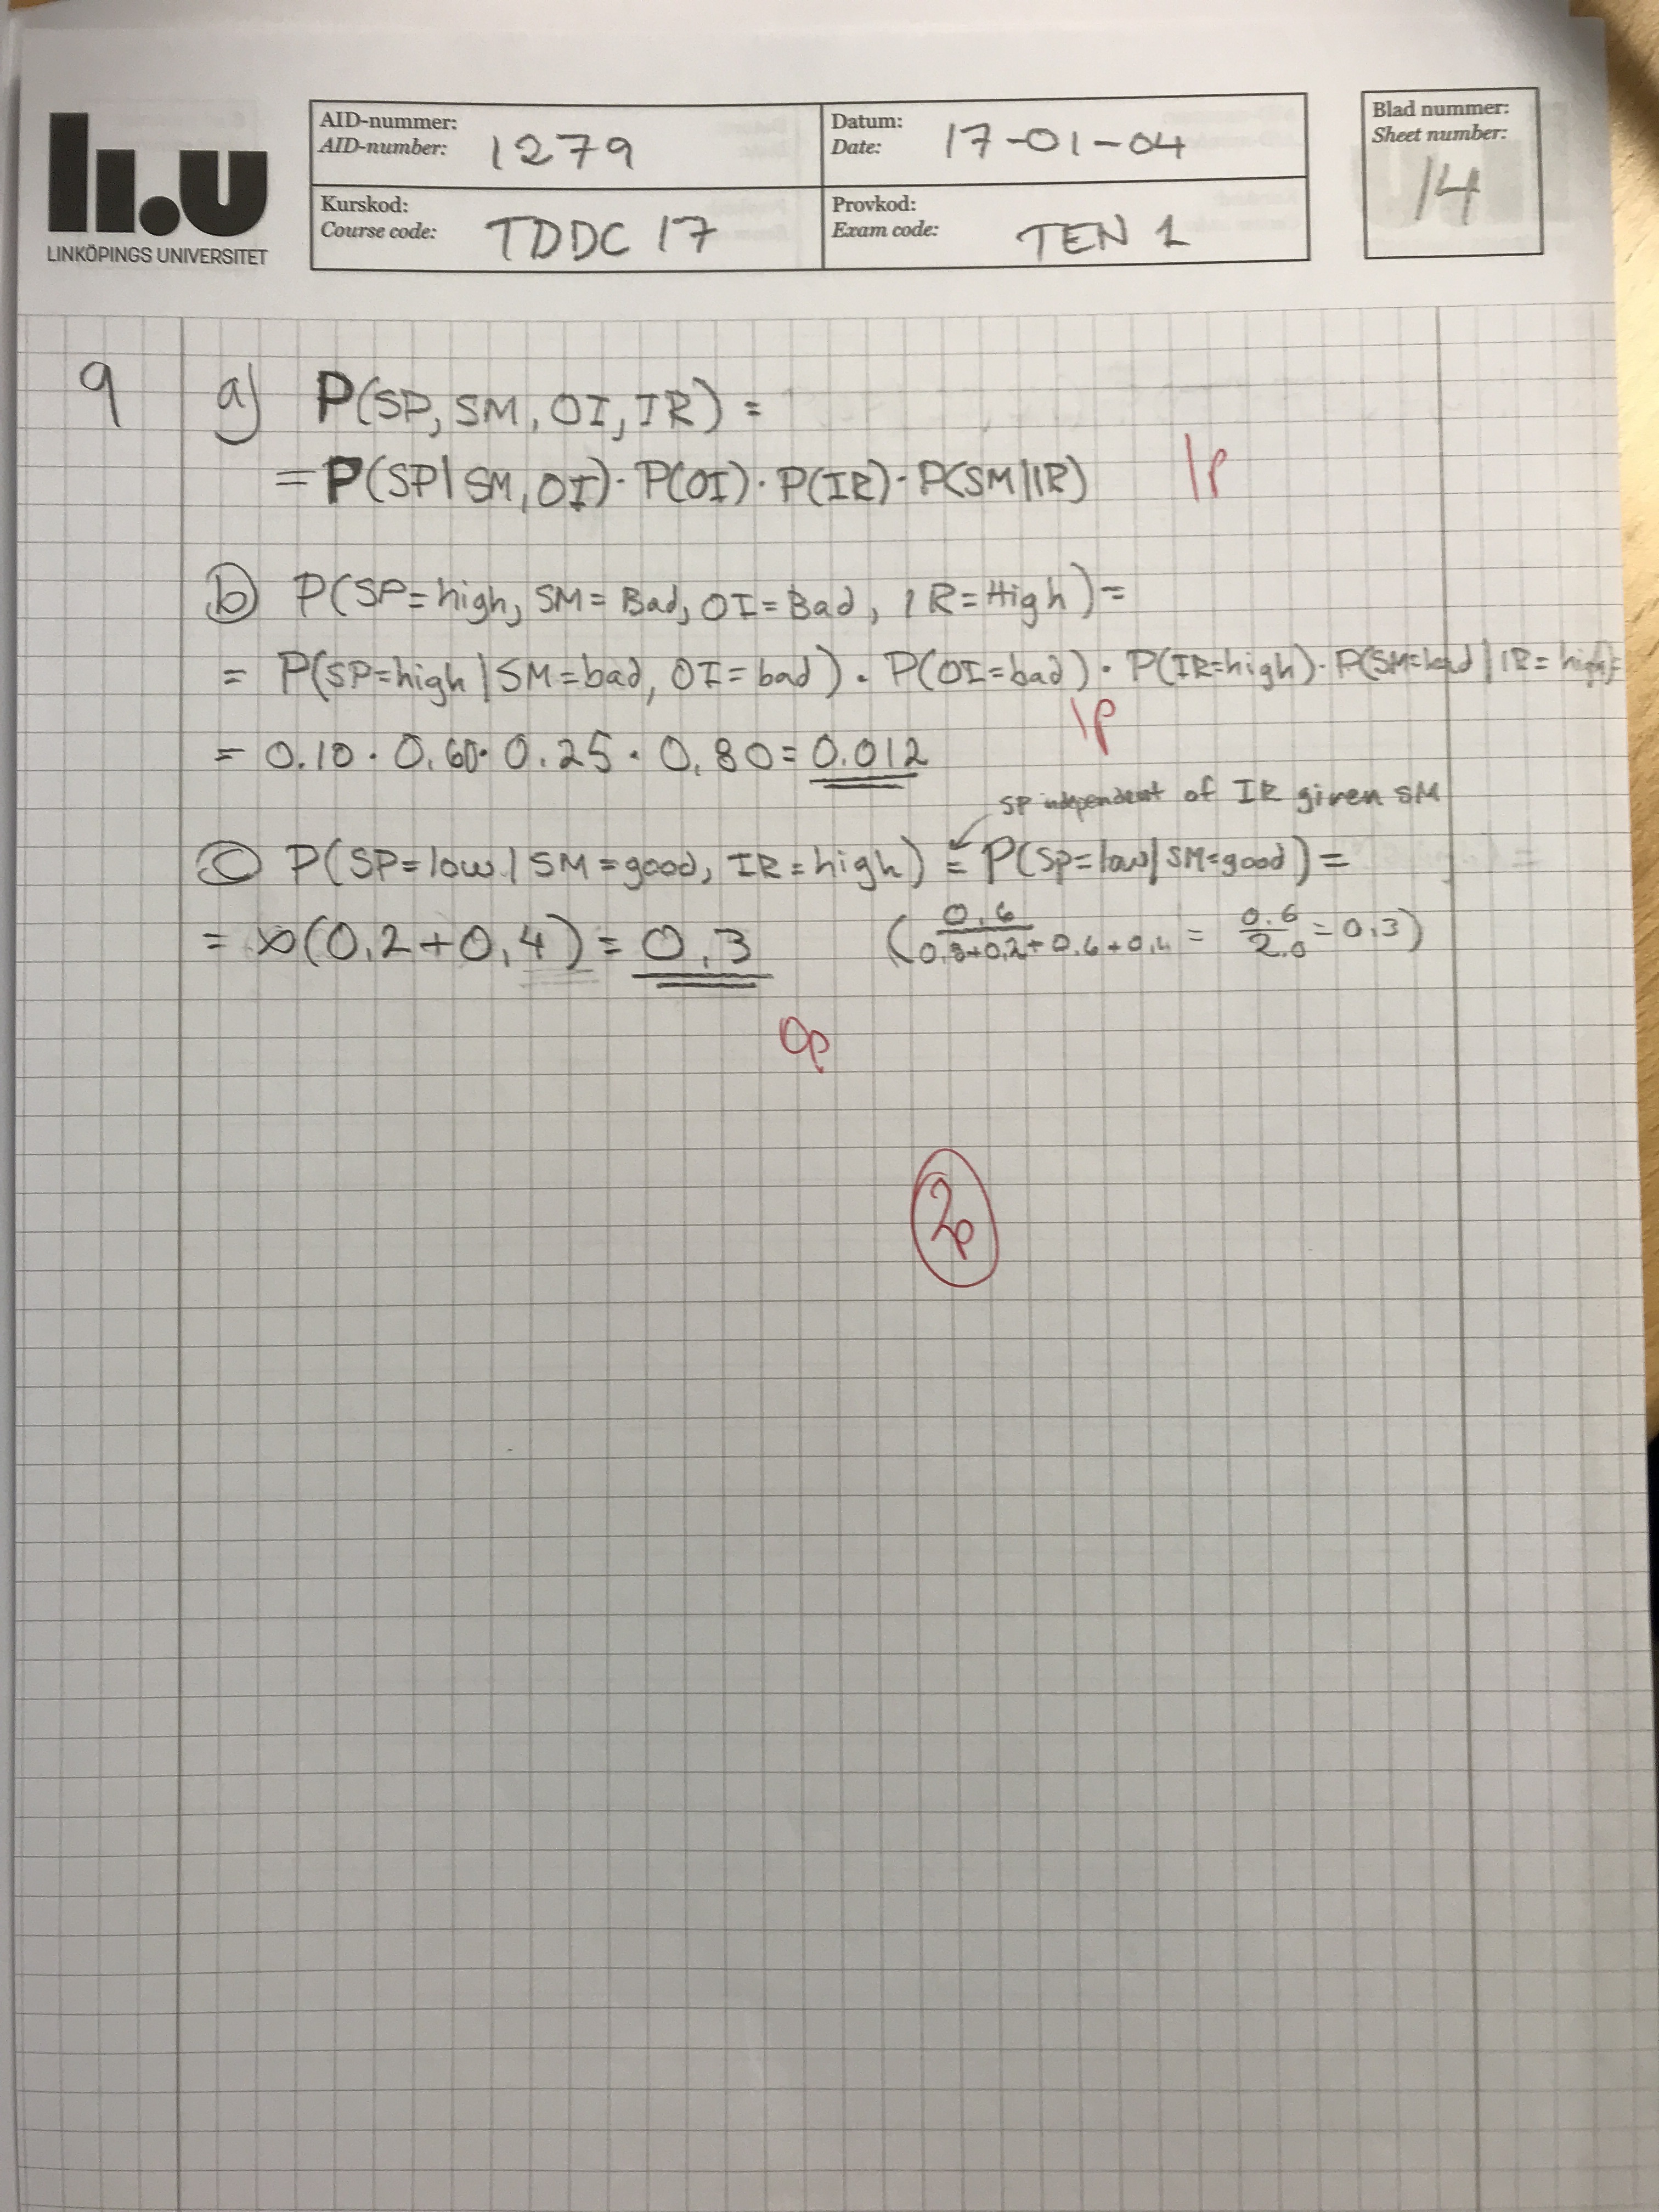 li.u
LINKÖPINGS UNIVERSITET
AID-nummer:
AID-number: 1279
Datum:
Date: 17-01-04
Kurskod:
Course code: TDDC 17
Provkod:
Exam code: TEN 1
Blad nummer:
Sheet number:
14
9 a) P(SP, SM, OI, IR) =
= P(SP | SM, OI) · P(OI) · P(IR) · P(SM | IR) 1p
b) P(SP = high, SM = Bad, OI = Bad, IR = High) =
= P(SP=high | SM=bad, OI=bad) · P(OI=bad) · P(IR=high) · P(SM=bad | IR=high) =
1p
= 0.10 · 0.60 · 0.25 · 0.80 = 0.012
SP independent of IR given SM
c) P(SP=low | SM=good, IR=high) = P(SP=low | SM=good) =
= ∝(0.2+0.4) = 0.3 (0.6 / 0.8+0.2+0.6+0.4 = 0.6 / 2.0 = 0.3)
0p
2p